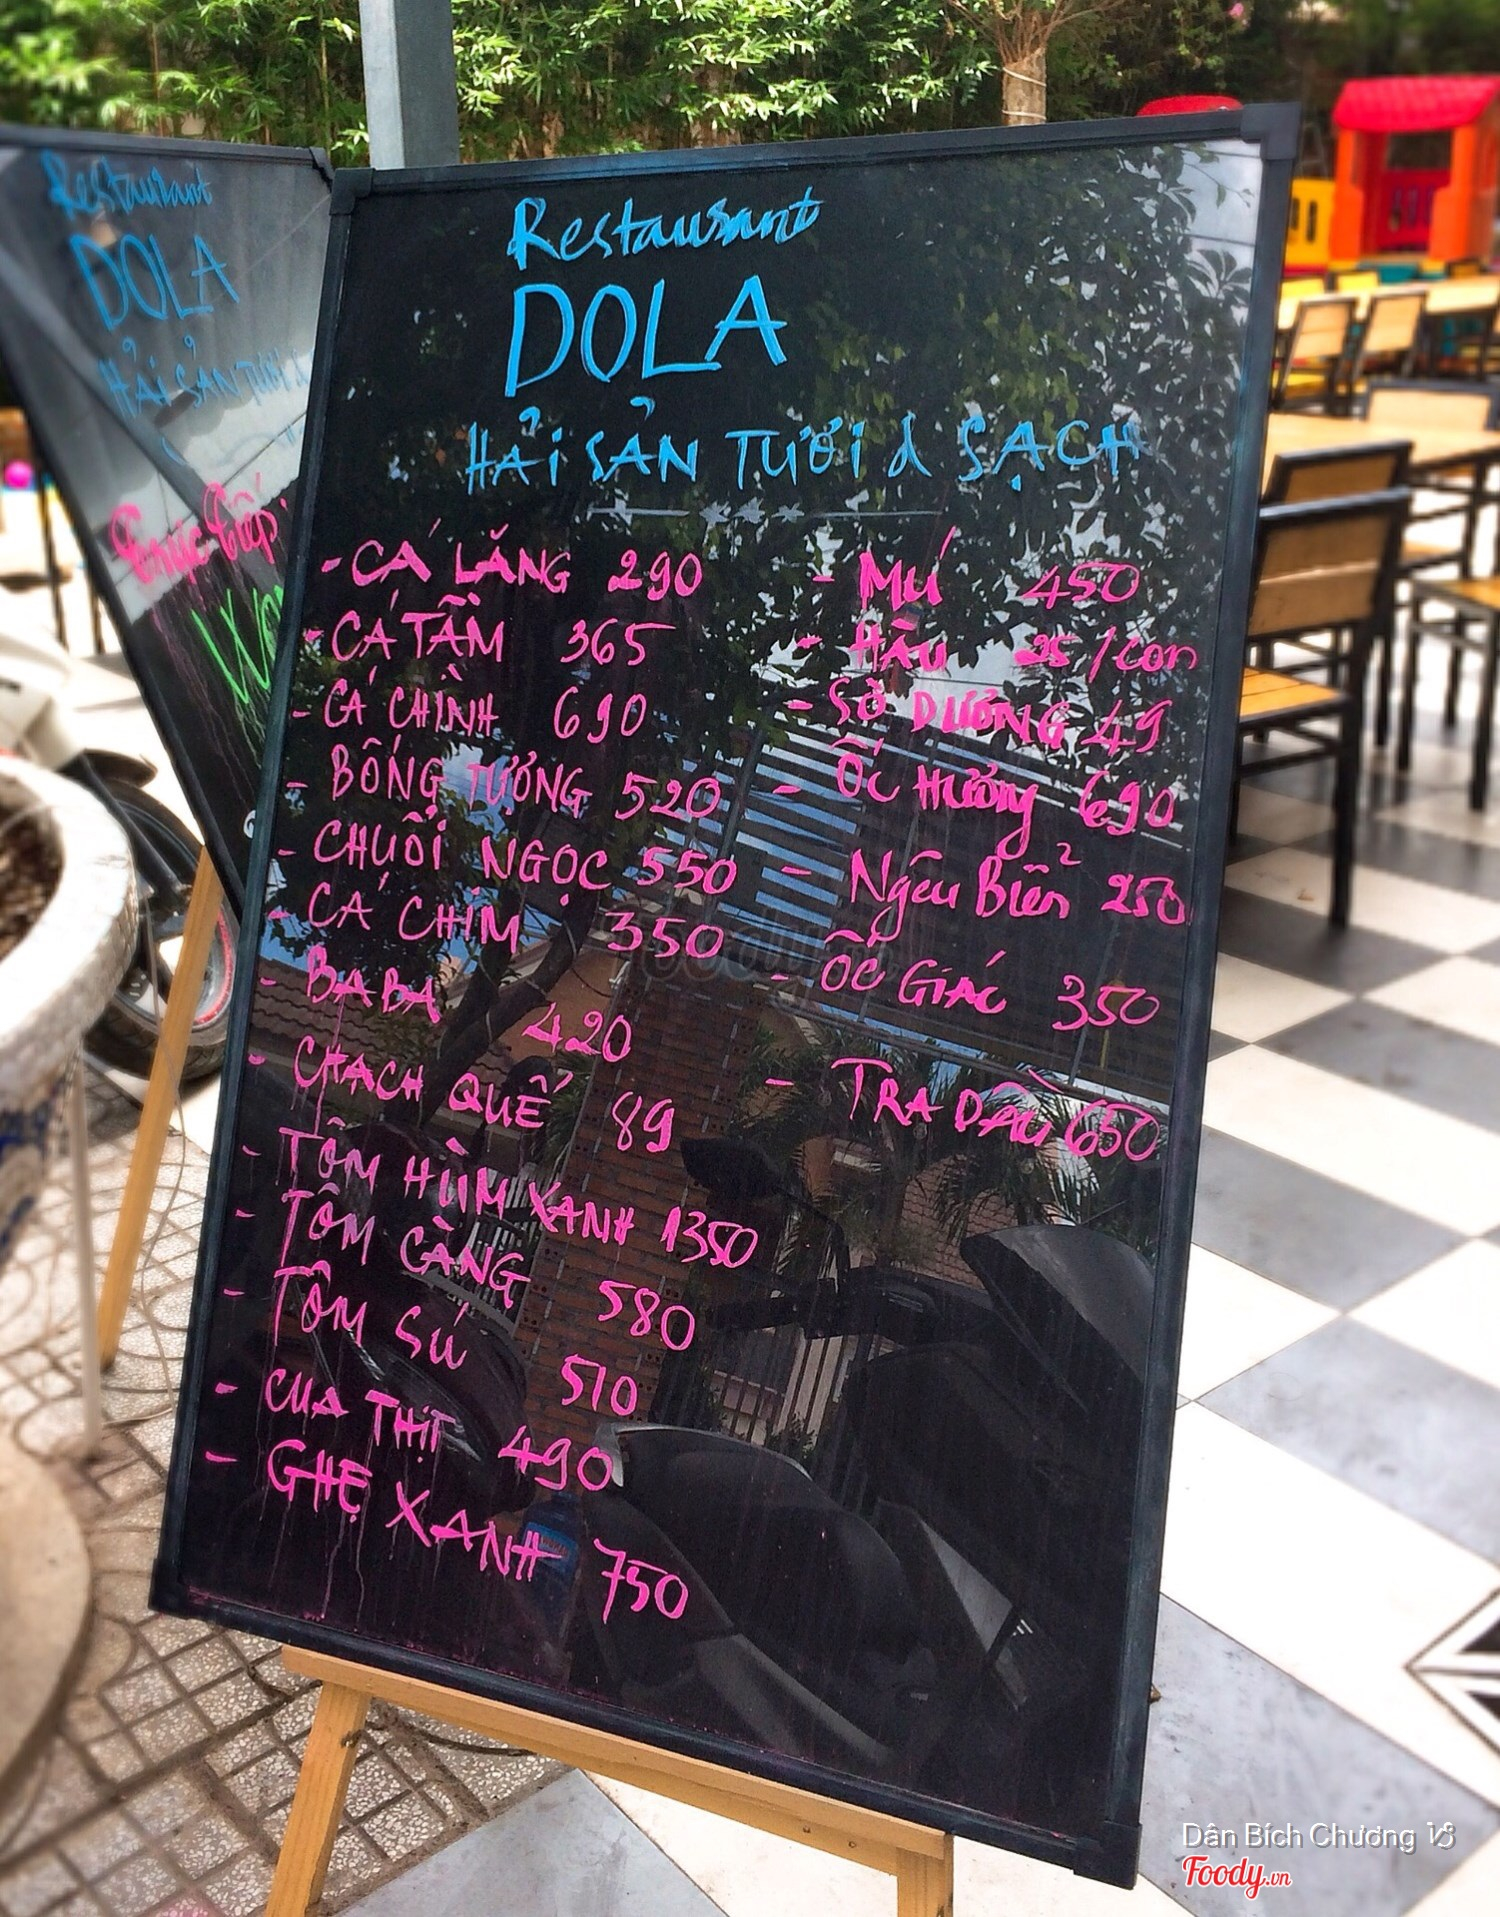 Restaurant
DOLA
HẢI SẢN TƯƠI
Trực tiếp:
Restaurant
DOLA
HẢI SẢN TƯƠI & SẠCH
- CÁ LĂNG 290
- CÁ TẦM 365
- CÁ CHÌNH 690
- BỐNG TƯỢNG 520
- CHUỐI NGỌC 550
- CÁ CHIM 350
- BABA 420
- CHẠCH QUẾ 89
- TÔM HÙM XANH 1350
- TÔM CÀNG 580
- TÔM SÚ 510
- CUA THỊT 490
- GHẸ XANH 750
- MÚ 450
- HÀU 25/con
- SÒ DƯƠNG 49
- ỐC HƯƠNG 690
- Ngêu Biển 250
- ỐC GIÁC 350
- TRA DẦU 650
foody
Dân Bích Chương
Foody.vn